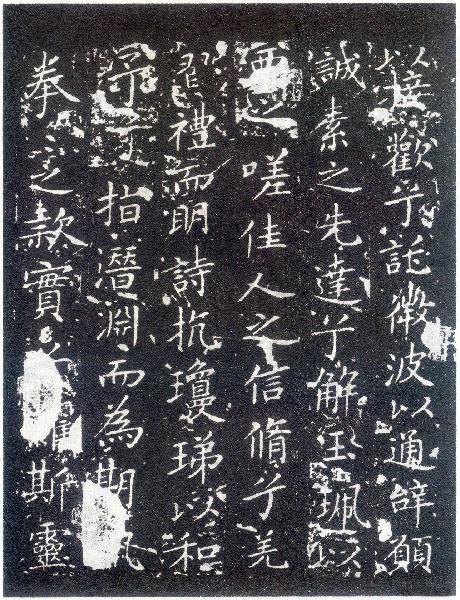 以接歡兮託微波以通辭願
誠素之先達兮解玉珮以
要之嗟佳人之信脩兮羌
習禮而明詩抗瓊珶以和
予兮指潛淵而為期執
拳之款實兮懼斯靈